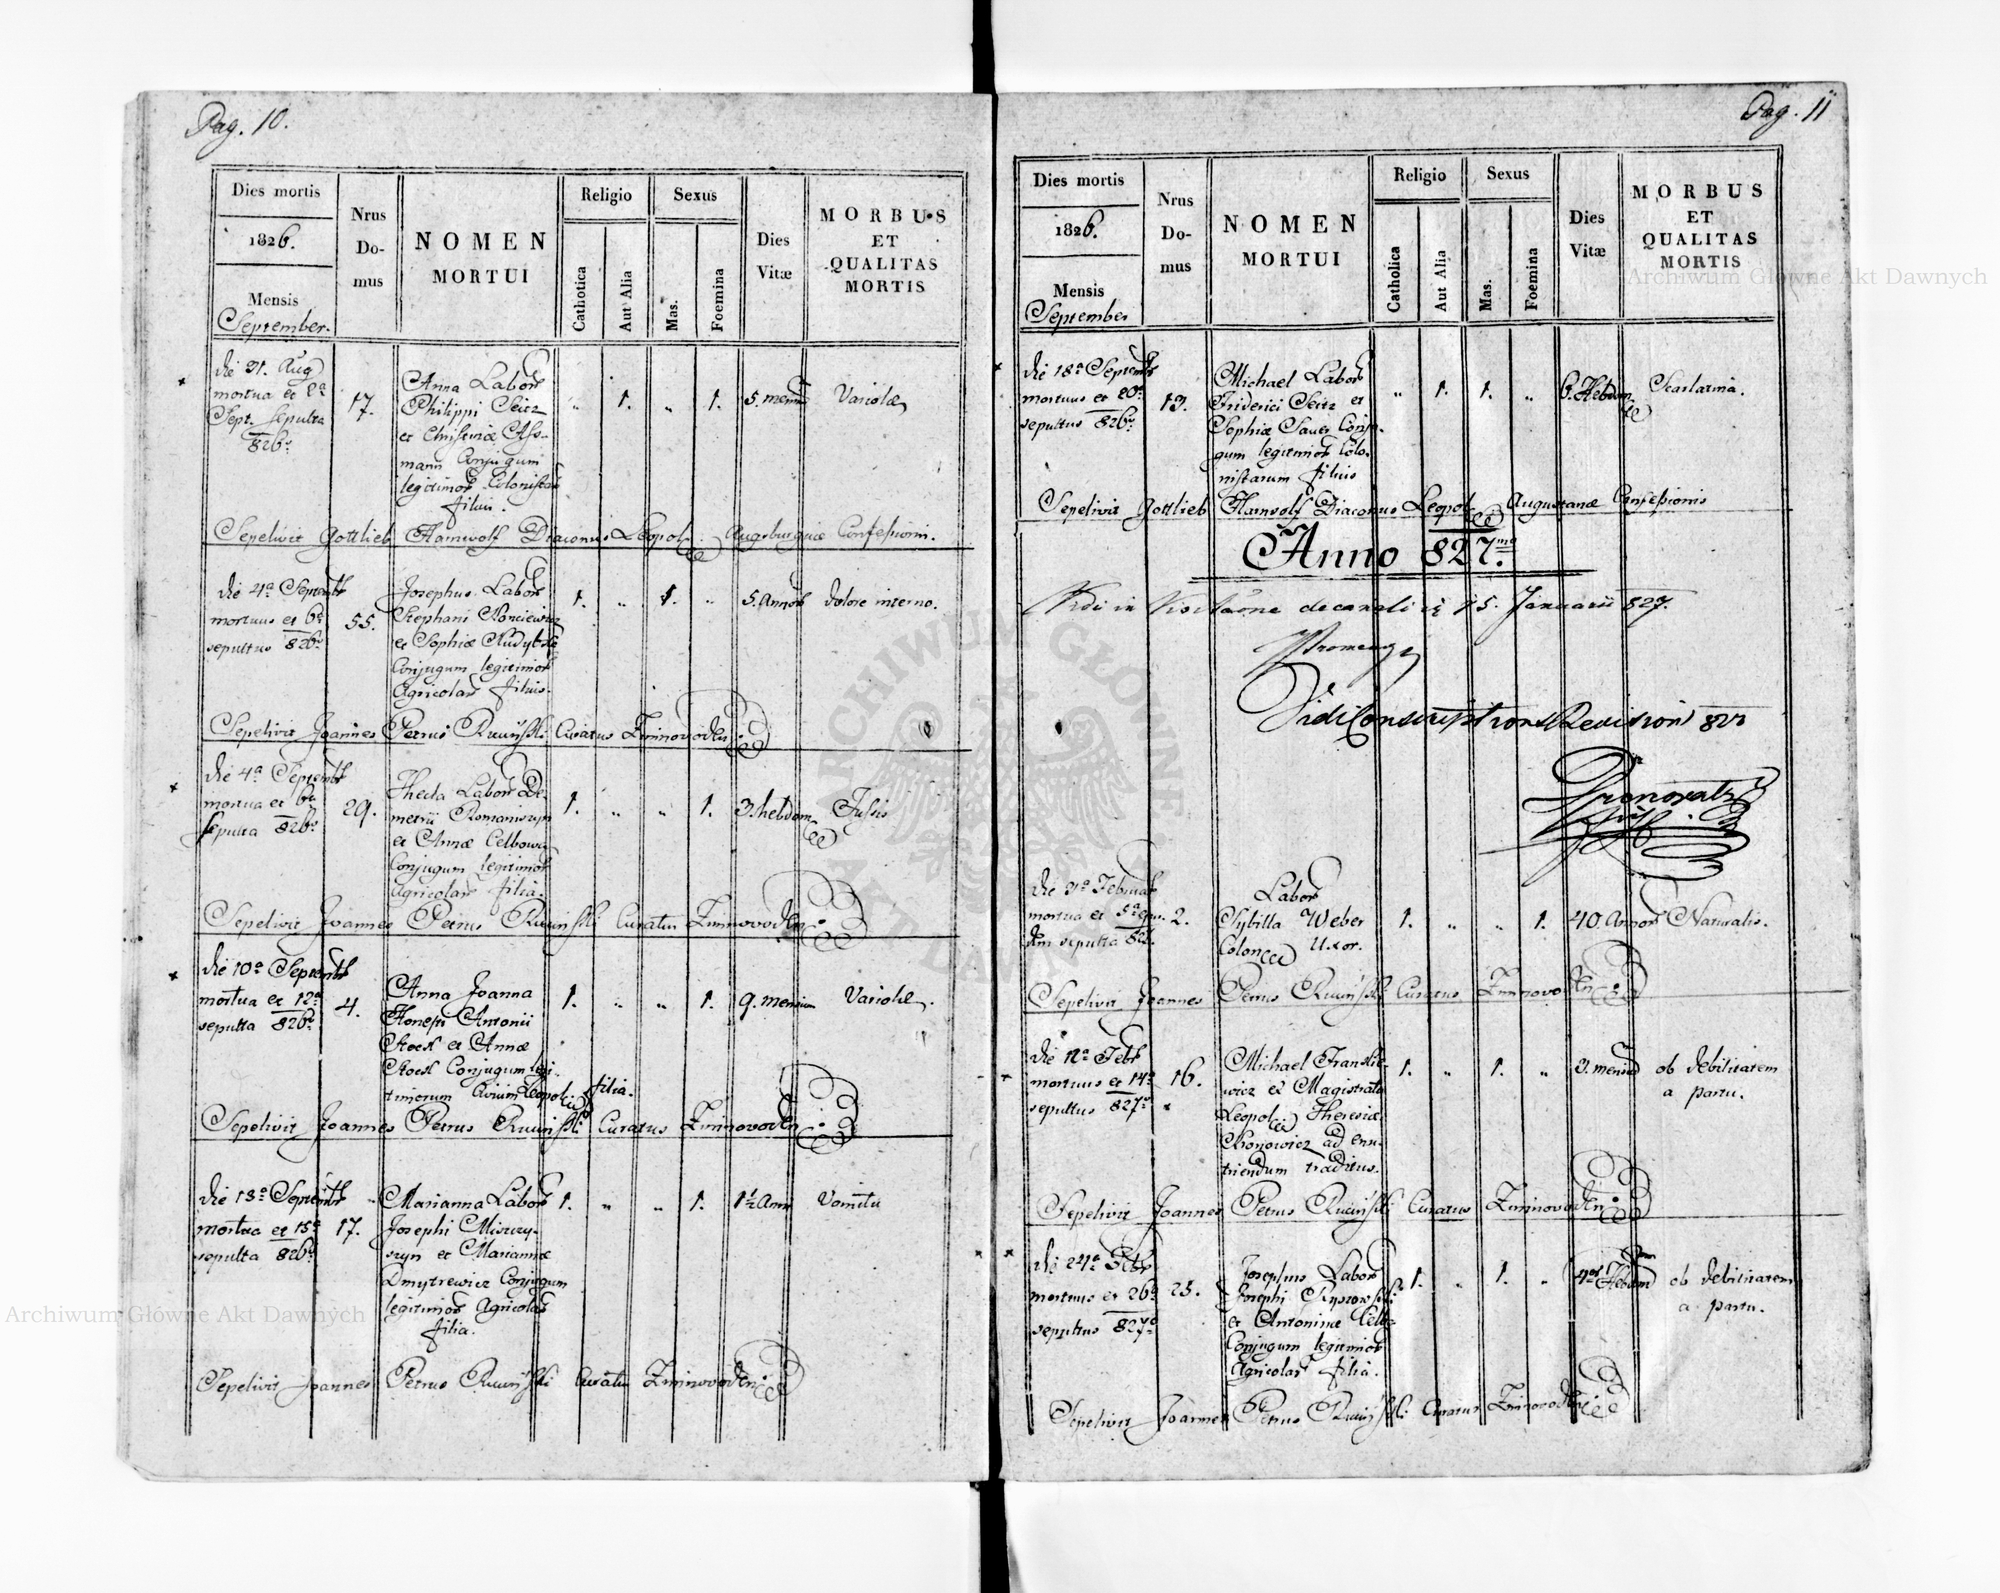 Pag. 10.
Dies mortis
1826.
Mensis
September.
Nrus
Do-
mus
NOMEN
MORTUI
Religio
Catholica
Aut Alia
Sexus
Mas.
Foemina
Dies
Vitæ
MORBUS
ET
QUALITAS
MORTIS
die 31. Aug
mortua et 2a
Sept. sepulta
826o
17.
Anna Labor
Philippi Seitz
et Christinæ Ass-
mann Conjugum
legitimor Colonistar
filia.
„ 1. „ 1.
5. mens
Variolæ
Sepelivit Gottlieb Hamwolf Diaconus Leopol. Augsburgicæ Confessionis.
die 4a Septembr
mortuus et 6a
sepultus 826o
55.
Josephus Labor
Stephani
et Sophiæ
Conjugum legitimor
Agricolar filius.
1. „ 1. „
5. Annor
dolore interno.
Sepelivit Joannes Petrus Curatus Zimnovoden
die 4a Septembr
mortua et 6a
sepulta 826o
29.
Thecla Labor De-
metrii Romaniszyn
et Annæ
Conjugum legitimor
Agricolar filia.
1. „ „ 1.
3. hebdom
Tussis
Sepelivit Joannes Petrus Curatus Zimnovoden
die 10a Septembr
mortua et 12a
sepulta 826o
4.
Anna Joanna
Honesti Antonii
et Annæ
Conjugum legi-
timorum Civium Leopol filia.
1. „ „ 1.
9. mensium
Variolæ.
Sepelivit Joannes Petrus Curatus Zimnovoden
die 13a Septembr
mortua et 15a
sepulta 826o
17.
Marianna Labor
Josephi
et Mariannæ
Dmytrewicz Conjugum
legitimor Agricolar
filia.
1. „ „ 1.
1½ Anni
Vomitu
Sepelivit Joannes Petrus Curatus Zimnovoden
Pag. 11
Dies mortis
1826.
Mensis
September
Nrus
Do-
mus
NOMEN
MORTUI
Religio
Catholica
Aut Alia
Sexus
Mas.
Foemina
Dies
Vitæ
MORBUS
ET
QUALITAS
MORTIS
die 18a Septembr
mortuus et 20a
sepultus 826o
13.
Michael Labor
Friderici Seitz et
Sophiæ Sauer Conju-
gum legitimor Colo-
nistarum filius
„ 1. 1. „
6. Hebdom
Scarlatina.
Sepelivit Gottlieb Hamwolf Diaconus Leopol Augustanæ Confessionis
Anno 827mo
Vidi in decanali 15. Januarii 827.
Vidi Conscriptions Revision
die 3a Februar
mortua et 5a
sepulta 827.
2.
Labor
Sybilla Weber
Uxor.
1. „ „ 1.
40 Annor
Naturalis.
Sepelivit Joannes Petrus Curatus Zimnovoden
die 12a Febr
mortuus et 14a
sepultus 827o
16.
Michael
et Magistratu
Leopol Theresiæ
ad enu-
triendum traditus.
1. „ 1. „
3. mensium
ob debilitatem
a partu.
Sepelivit Joannes Petrus Curatus Zimnovoden
die 24a Febr
mortuus et 26a
sepultus 827o
25.
Josephus Labor
Josephi
et Antoninæ
Conjugum legitimor
Agricolar filia.
1. „ 1. „
Hebdom
ob debilitatem
a partu.
Sepelivit Joannes Petrus Curatus Zimnovoden
Archiwum Główne Akt Dawnych
Archiwum Główne Akt Dawnych
ARCHIWUM GŁÓWNE AKT DAWNYCH